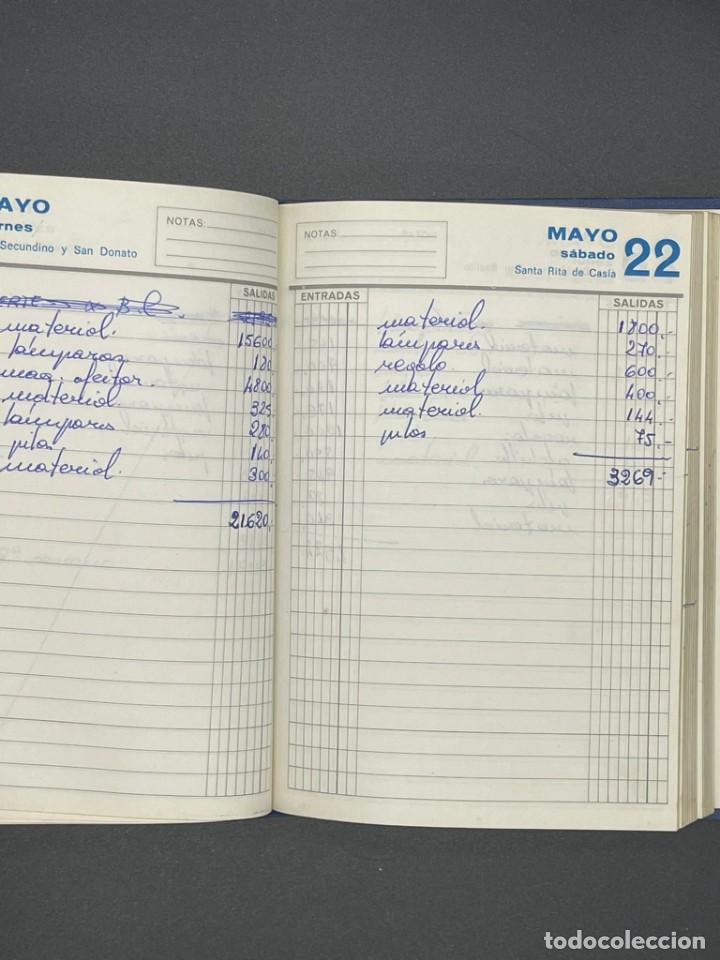 AYO
rnes
Secundino y San Donato
NOTAS:
SALIDAS
material. 15600
lámparas 180
maq. afeitar. 4800
material. 325
lámpares 280
pilas 140
material. 300
21.620.-
NOTAS:
MAYO
sábado
Santa Rita de Casia
22
ENTRADAS
SALIDAS
material. 1800.-
lámpares 270.-
regalo. 600.-
material. 400.-
material. 144.-
pilas. 75.-
3269.-
todocoleccion
todocoleccion.net